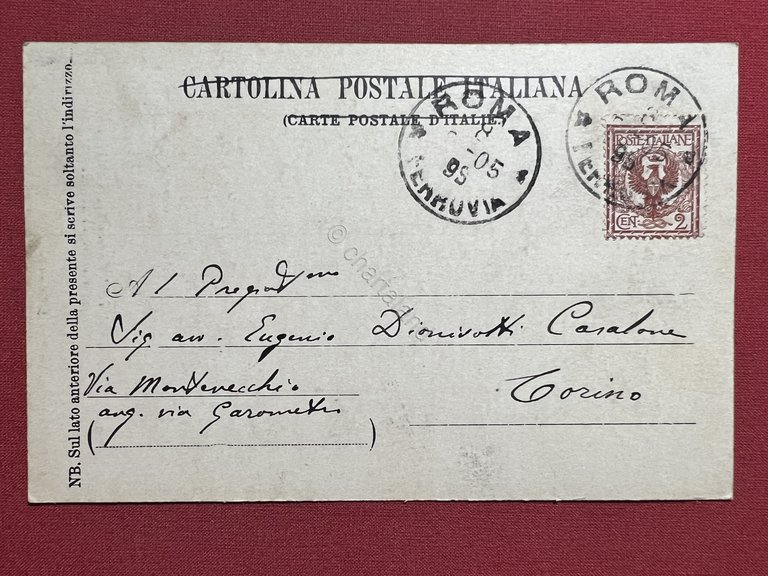 CARTOLINA POSTALE ITALIANA
(CARTE POSTALE D'ITALIE)
ROMA
8-05
9S
FERROVIA
ROMA
9S
FERROVIA
POSTE ITALIANE
CEN. 2
NB. Sul lato anteriore della presente si scrive soltanto l'indirizzo.
Al Preg
Sig avv. Eugenio Dionisotti Casalone
Via Montevecchio
Torino
ang. via
© charta